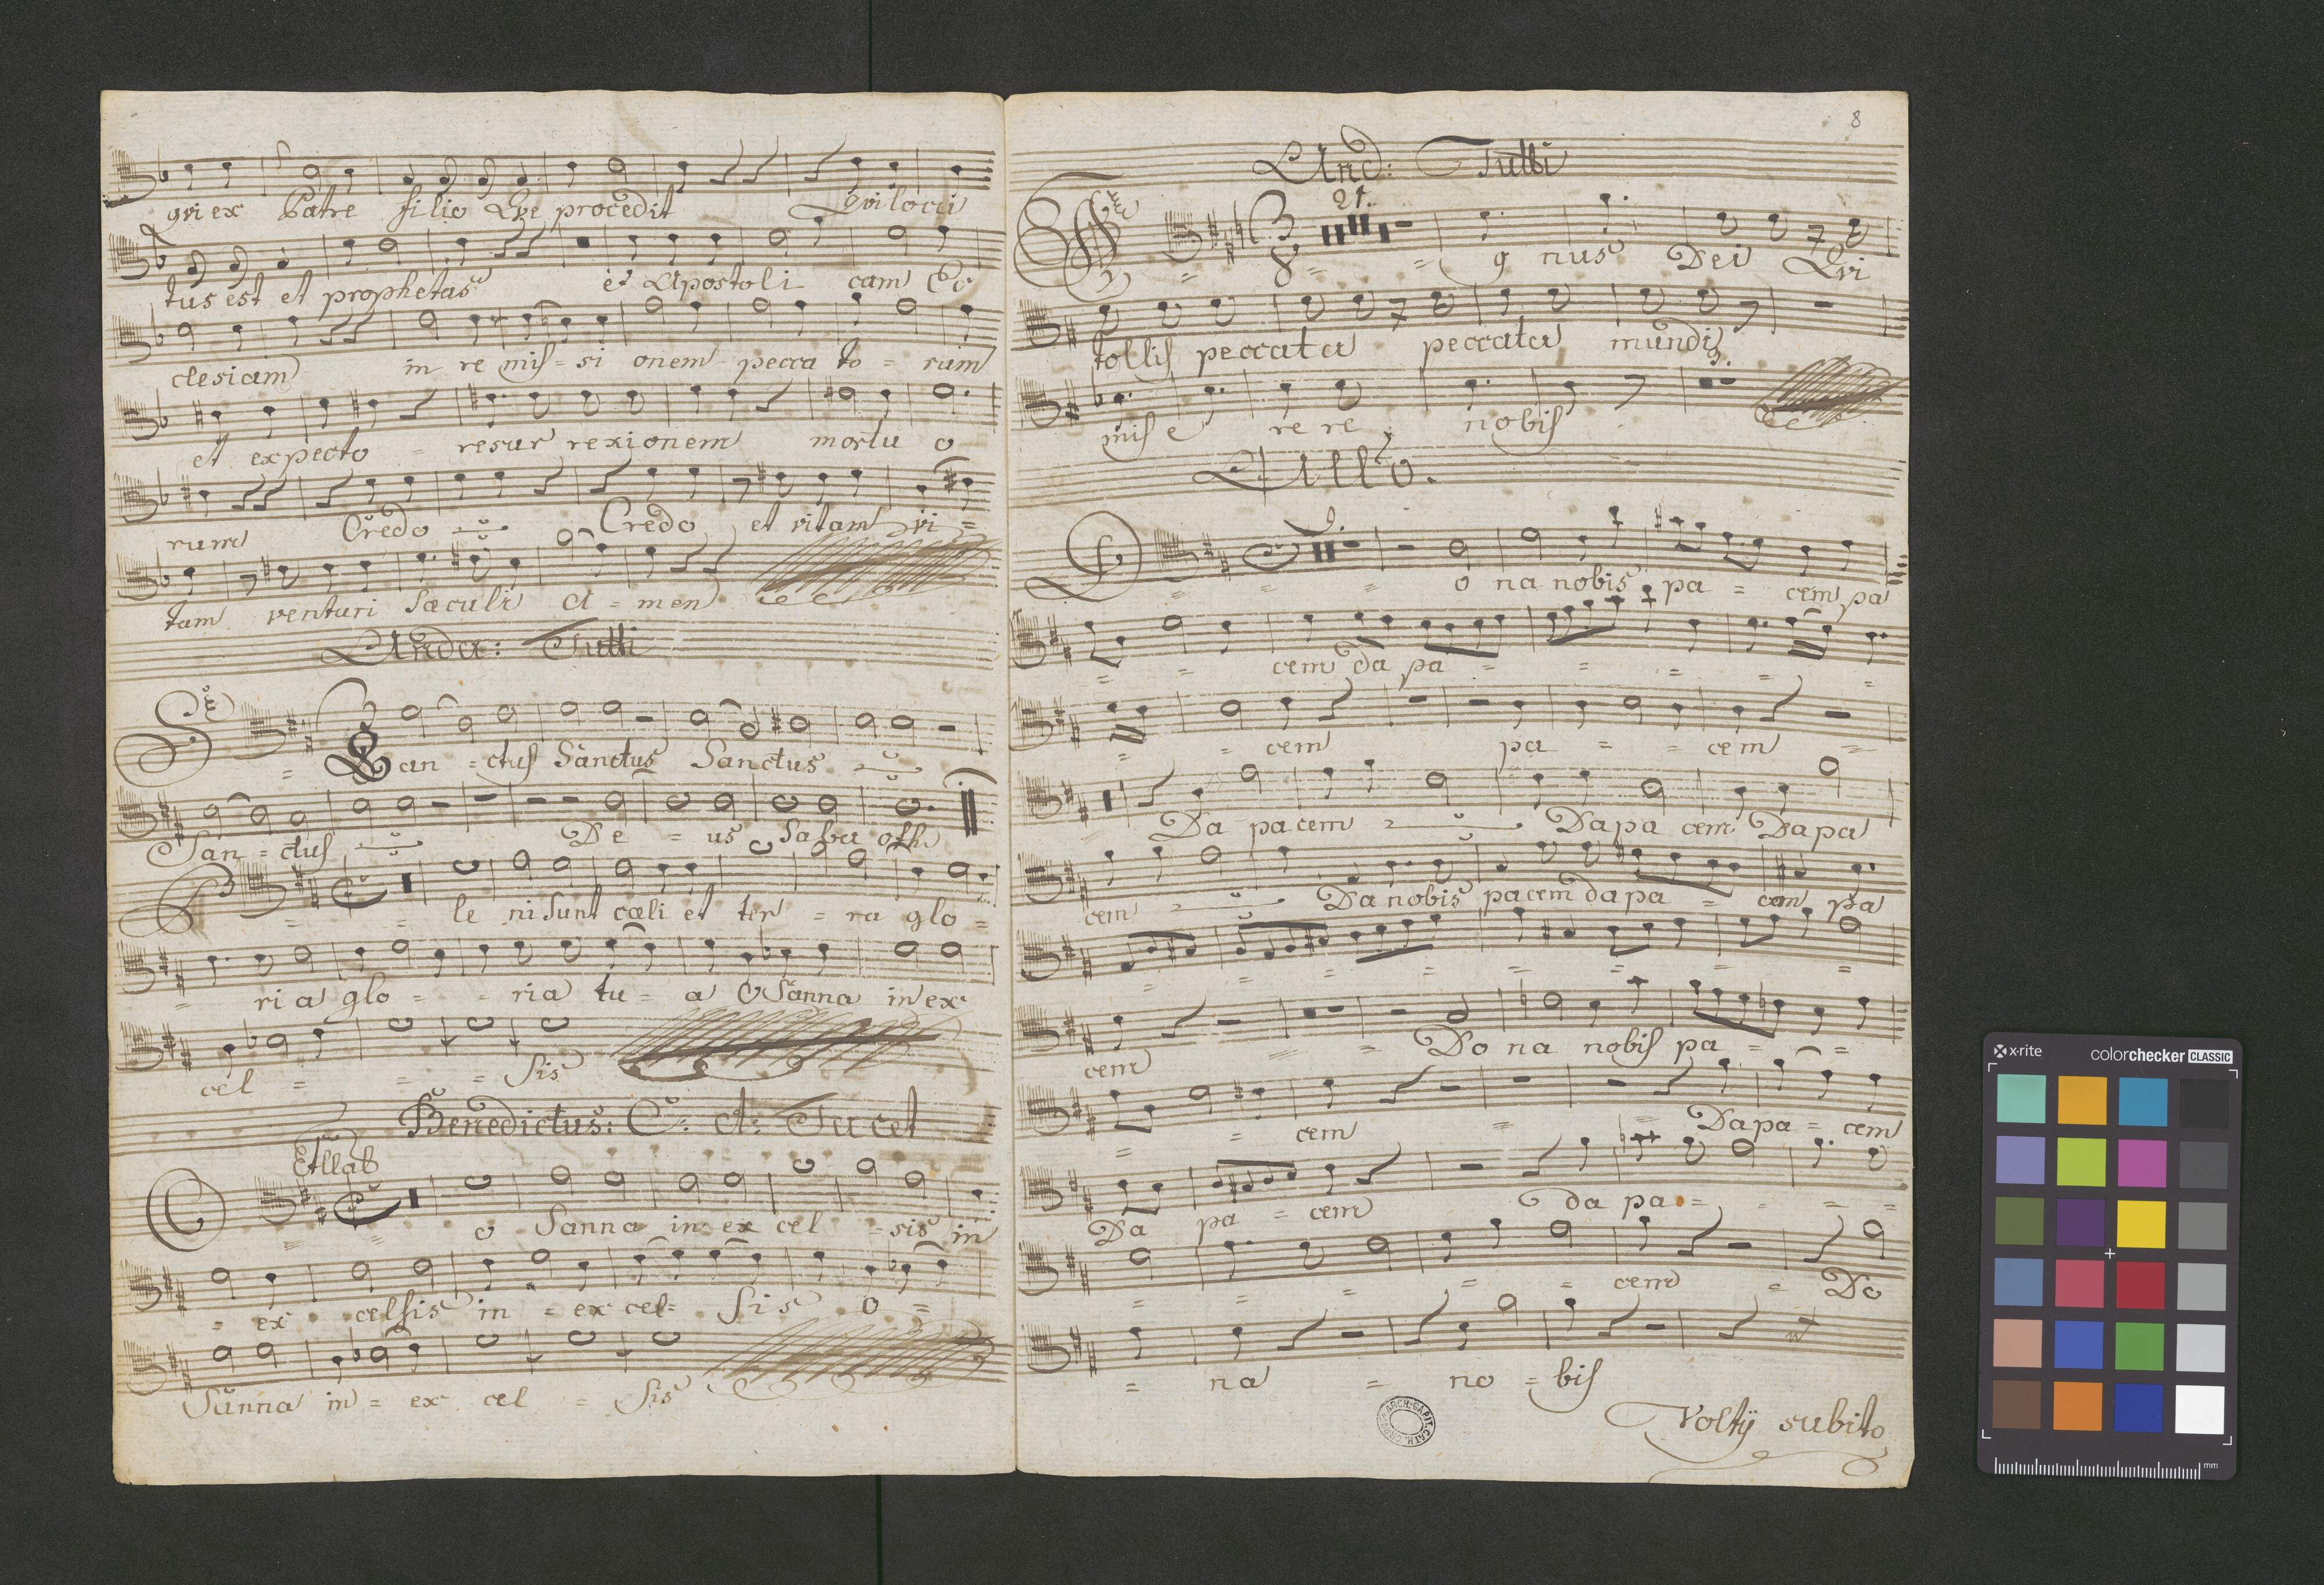 qvi ex Patre filio Qve procedit Qvi locu
tus est et prophetas et Apostoli cam Ec
clesiam in re miſ = si onem pecca to = rum
et expecto = resur rexionem mortu o
rum Credo Credo et vitam vi =
tam venturi sæculi A = men
Anda: Tutti
San = ctuſ Sanctus Sanctus
San = ctuſ De = us Saba oth
P = = le ni sunt cæli et ter = ra glo =
= ri a glo = = ria tu = a O Sanna in ex
cel = = = sis
Benedictus: C: A: Tacet
Allab
O = = o Sanna in ex cel = sis in
= ex celsis in = ex cel = sis o =
Sanna in = ex cel = sis
8
And: Tutti
21.
A = = = g nus Dei Qvi
tollis peccata peccata mundi
3.
miſ e re re nobiſ
All⁰.
9.
D = = = o na nobis pa = cem pa
= = cem da pa = = = = =
= = cem pa = = cem =
Da pacem Dapa cem Dapa
cem Da nobis pacem dapa = cem pa
= = = = = = = =
cem = = Do na nobiſ pa = =
= = cem = = Dapa = cem
Da pa = cem da pa = = = =
= = = = = cem = Do
= na = no = biſ
Voltÿ subito
ARCH. CAPIT. CATH.
x·rite colorchecker CLASSIC
mm